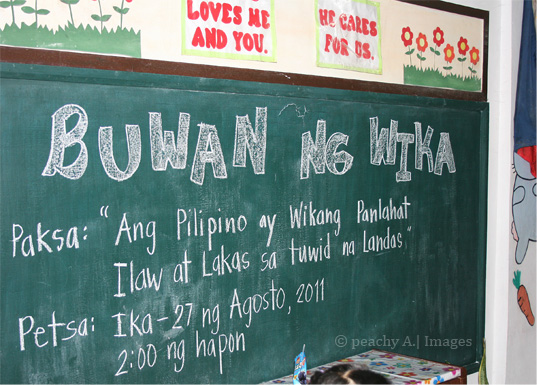 LOVES ME
AND YOU.
HE CARES
FOR US.
BUWAN NG WIKA
Paksa: "Ang Pilipino ay Wikang Panlahat
Ilaw at Lakas sa tuwid na Landas."
Petsa: Ika-27 ng Agosto, 2011
2:00 ng hapon
© peachy A.| Images